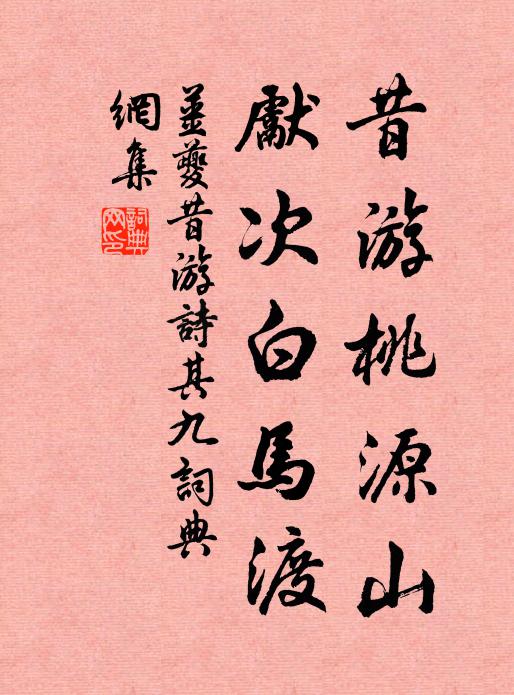 昔游桃源山
獻次白馬渡
姜夔昔游詩其九詞典
網集
詞典
网印